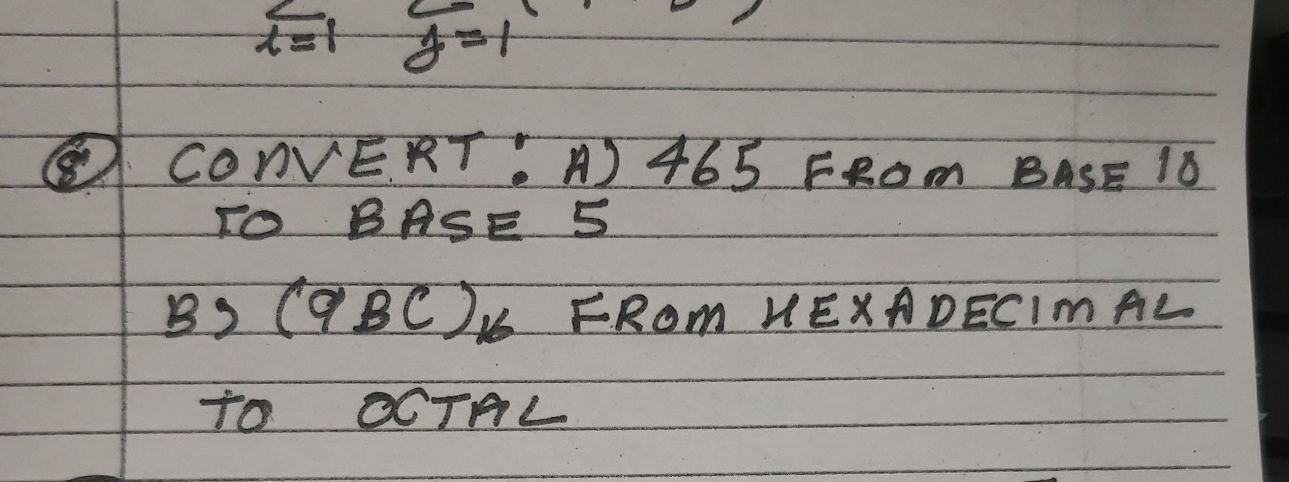 i=1 j=1
8 CONVERT: A) 465 FROM BASE 10
TO BASE 5
B) (9BC)16 FROM HEXADECIMAL
TO OCTAL